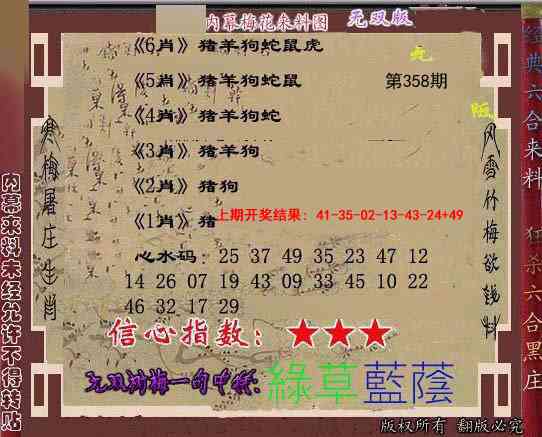 内幕梅花来料图 无双版
《6肖》猪羊狗蛇鼠虎
《5肖》猪羊狗蛇鼠 第358期
《4肖》猪羊狗蛇
《3肖》猪羊狗
《2肖》猪狗
《1肖》猪
上期开奖结果：41-35-02-13-43-24+49
心水码：25 37 49 35 23 47 12
14 26 07 19 43 09 33 45 10 22
46 32 17 29
信心指数：★★★
綠草藍蔭
版权所有 翻版必究
寒梅屠庄生肖
内幕来料未经允许不得转贴
风雪竹梅欲钱料
经典六合来料
狂杀六合黑庄